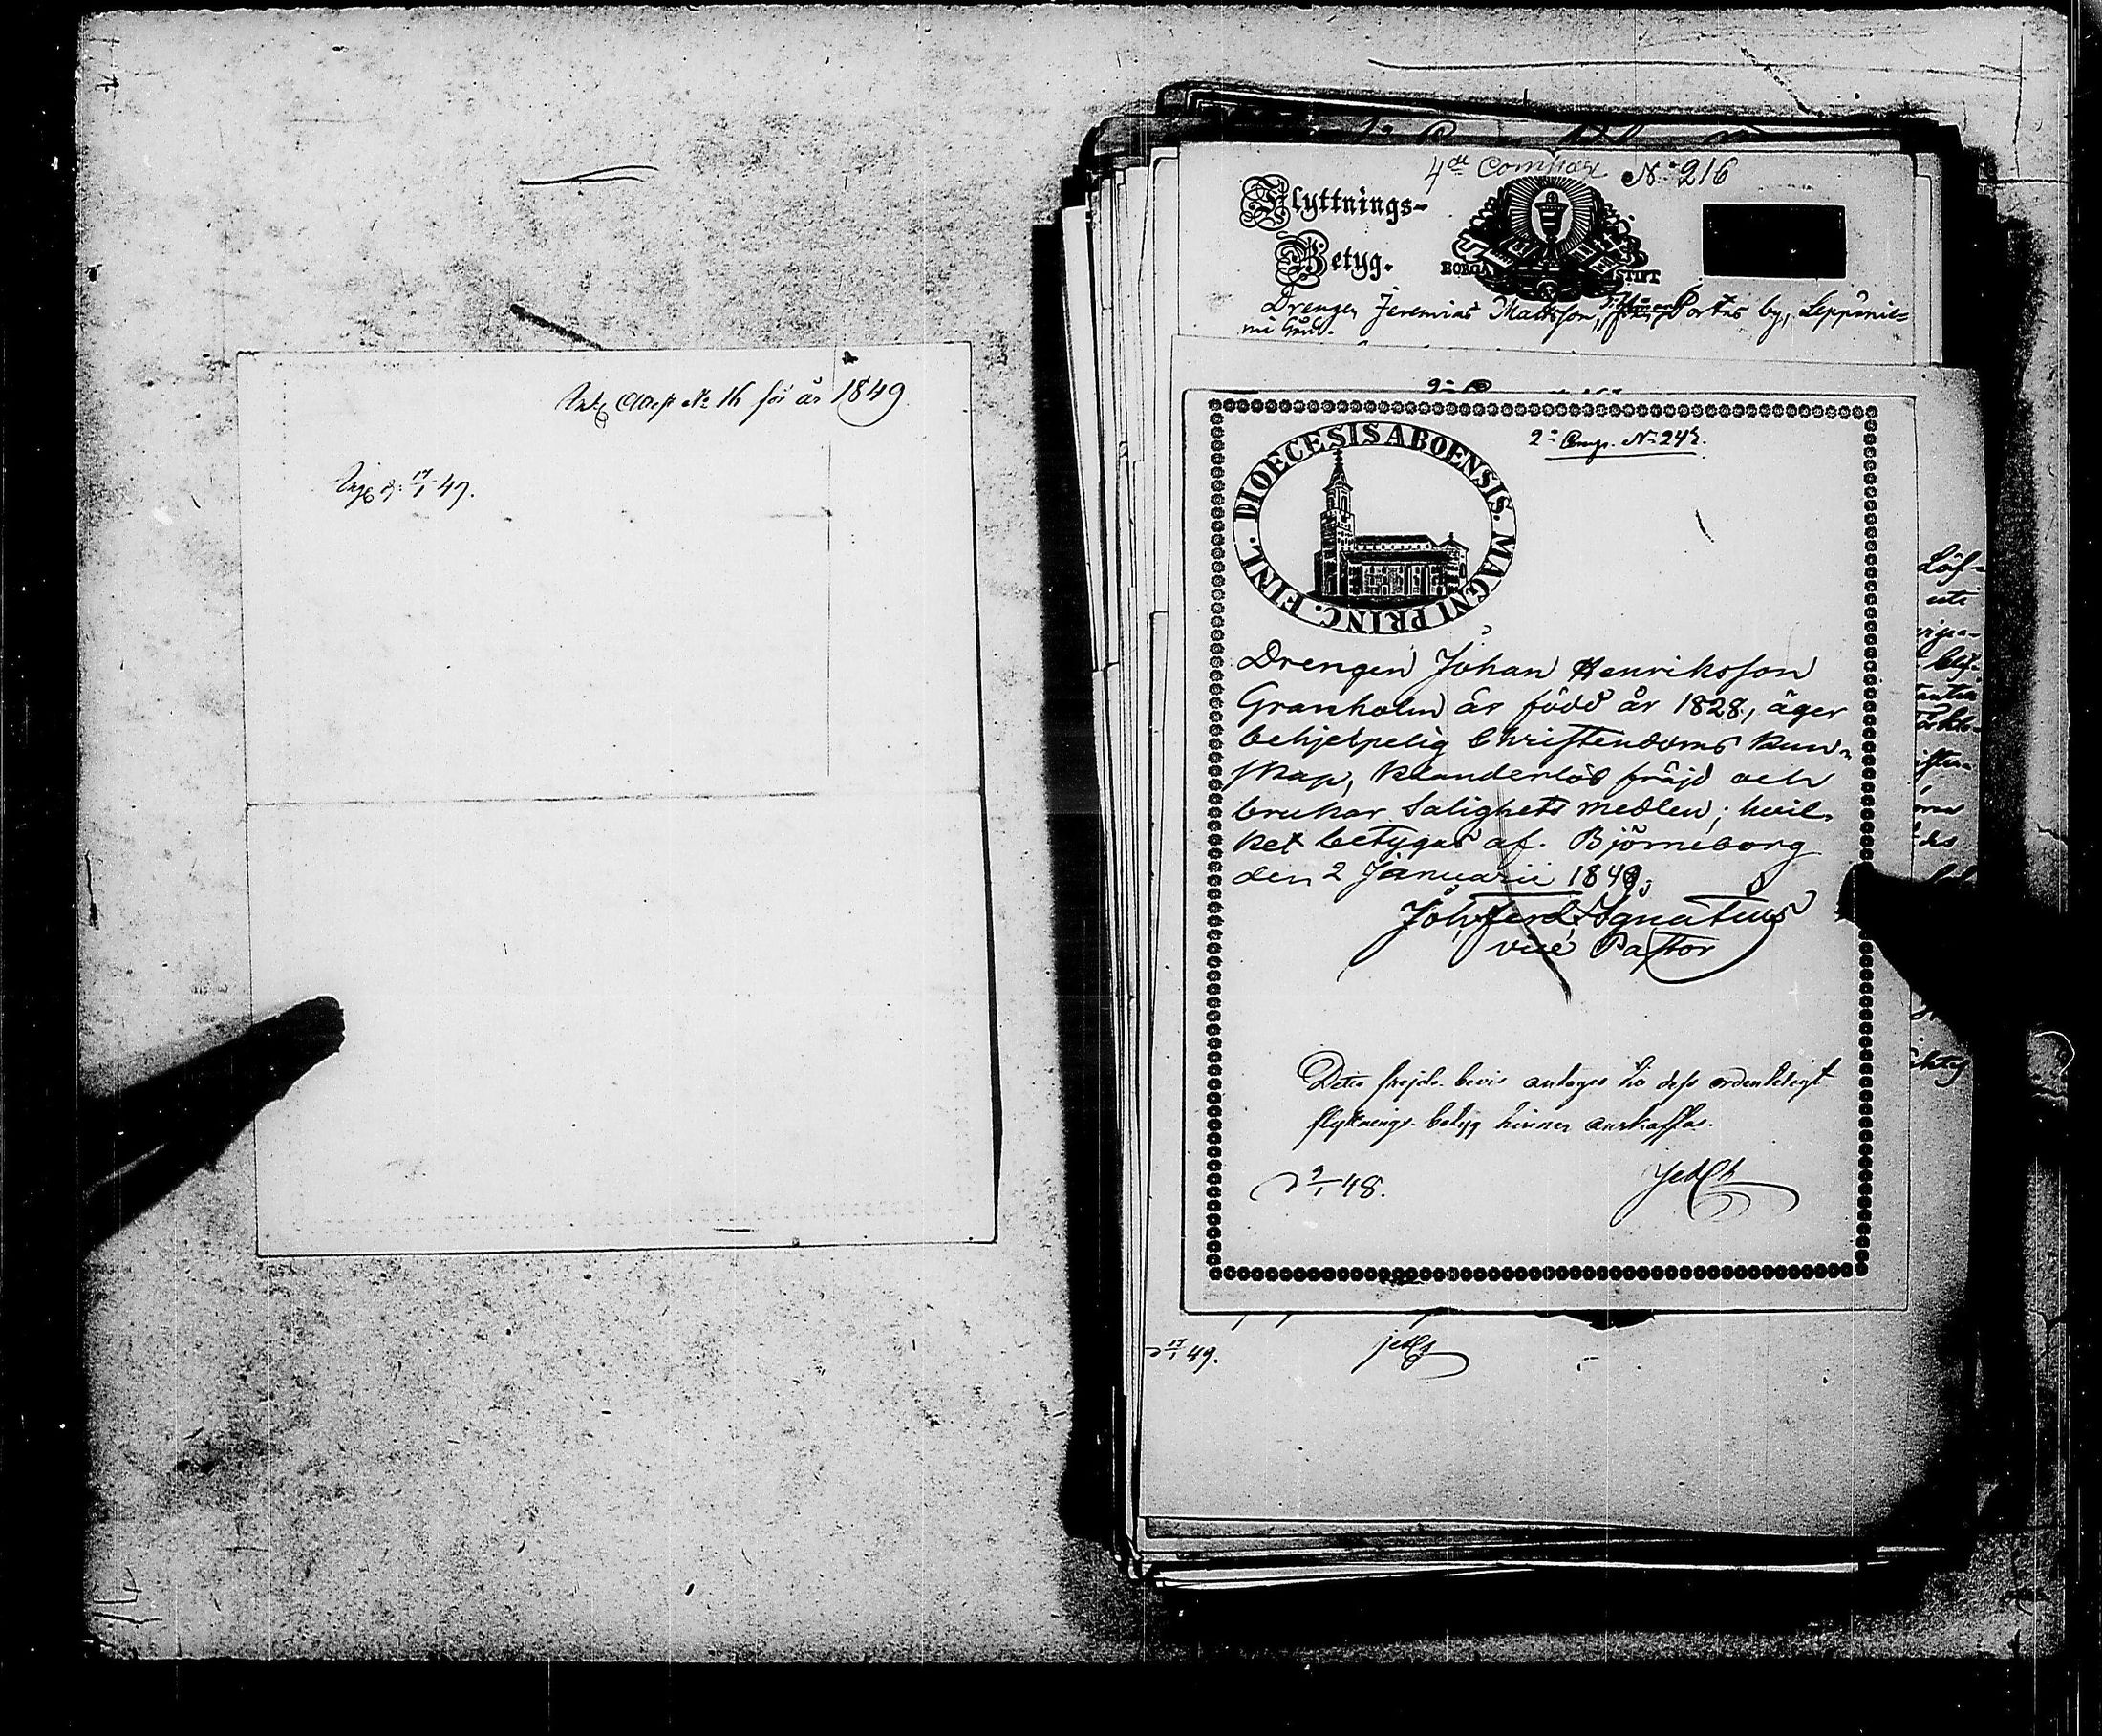 Attest No 16 för år 1849
17/1 49.
4de Comp. No 216
Flyttnings-
Betyg.
BORGÅ STIFT
Drengen Jeremias Mattsson, Portas by, Leppänie-
mi
2a Comp. No 242.
DIOECESIS ABOENSIS. MAGNI PRINC. FINL.
Drengen Johan Henriksson
Granholm är född år 1828, äger
behjelpelig Christendoms kun-
skap, klanderlös fräjd och
brukar Salighets medlen; hvil-
ket betygas af. Björneborg
den 2 Januarii 1849.
Joh. Ferd. Ignatius
vice Pastor
Detta frejde-bevis antages tis dess ordenteligt
flyttnings-betyg hinner anskaffas.
d 9/1 48.
d 17/1 49.